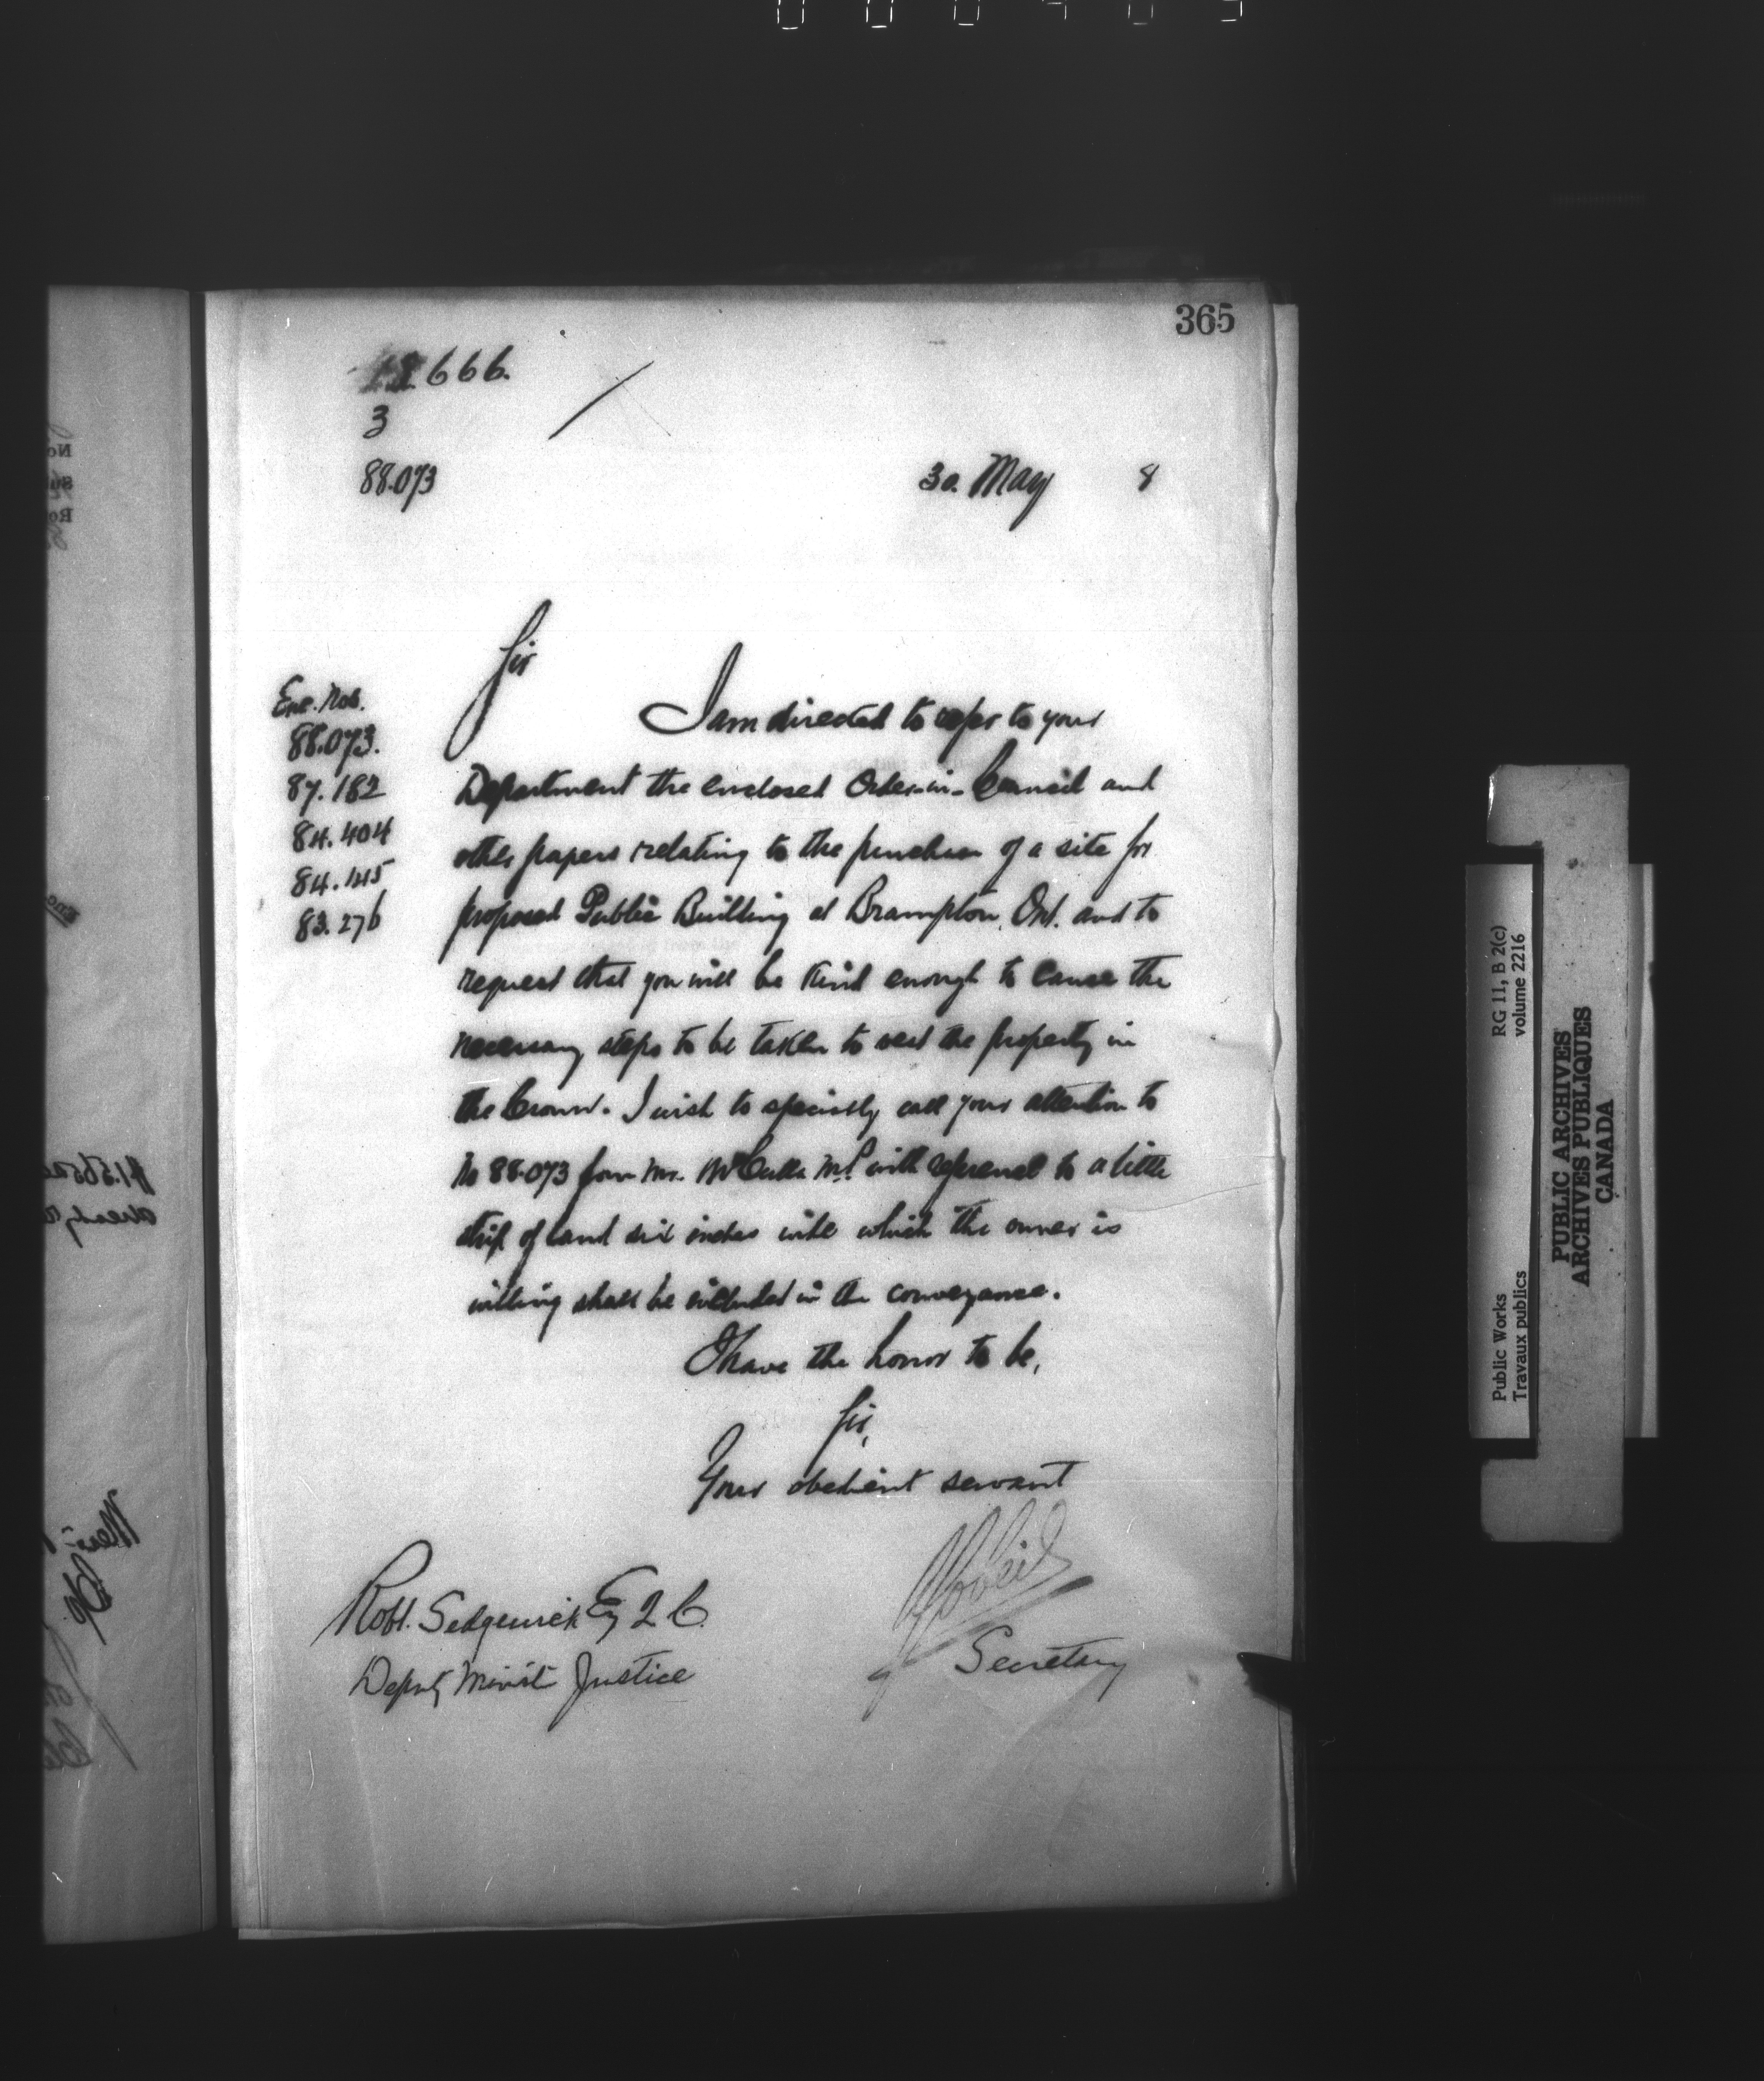 365
666.
3
88.073
30. May 8
Sir
Enc. Nos.
88.073.
87.182
84.404
84.145
83.276
I am directed to refer to your
Department the enclosed Order-in-Council and
other papers relating to the purchase of a site for
proposed Public Building at Brampton, Ont. and to
request that you will be kind enough to cause the
necessary steps to be taken to vest the property in
the Crown. I wish to specially call your attention to
No 88.073 from Mr. McCulla M.P. with reference to a little
strip of land six inches wide which the owner is
willing shall be included in the conveyance.
I have the honor to be,
Sir,
Your obedient servant
Secretary
Robt. Sedgewick Esq Q C.
Deputy Minister Justice
RG 11, B 2(c)
volume 2216
Public Works
Travaux publics
PUBLIC ARCHIVES
ARCHIVES PUBLIQUES
CANADA